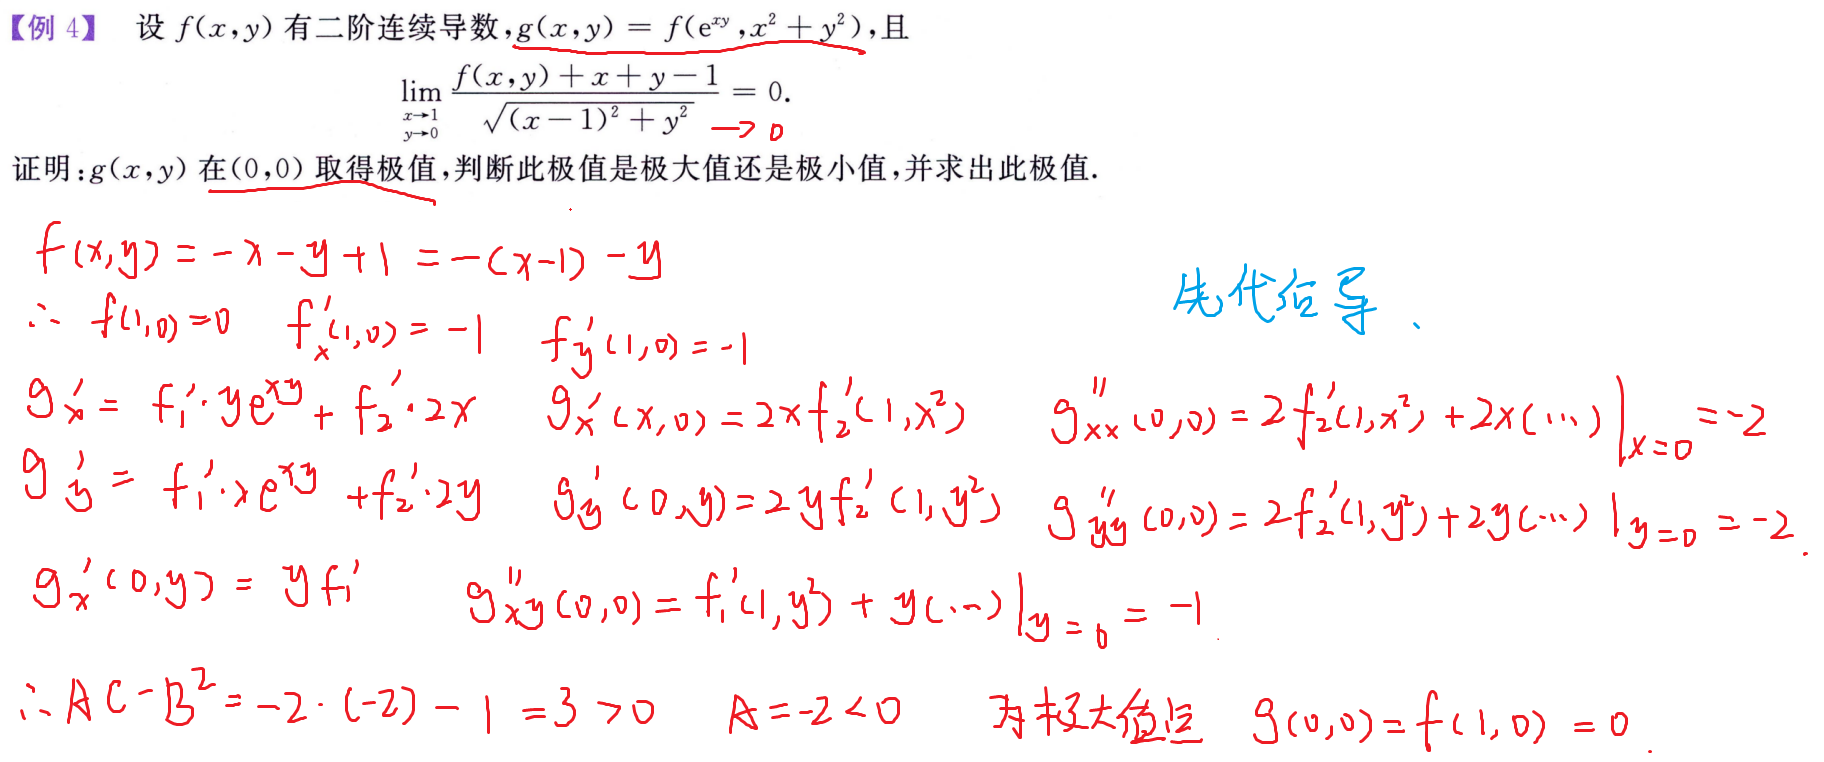 【例 4】 设 f(x,y) 有二阶连续导数,g(x,y) = f(e^{xy},x²+y²),且
lim_{x→1, y→0} (f(x,y)+x+y-1)/√((x-1)²+y²) = 0.
→ 0
证明:g(x,y) 在(0,0) 取得极值,判断此极值是极大值还是极小值,并求出此极值.
f(x,y) = -x-y+1 = -(x-1)-y
先代后导、
∴ f(1,0)=0 f'_x(1,0) = -1 f'_y(1,0) = -1
g'_x = f'_1·ye^{xy} + f'_2·2x g'_x(x,0) = 2xf'_2(1,x²) g''_{xx}(0,0) = 2f'_2(1,x²) + 2x(…)|_{x=0} = -2
g'_y = f'_1·xe^{xy} + f'_2·2y g'_y(0,y) = 2yf'_2(1,y²) g''_{yy}(0,0) = 2f'_2(1,y²) + 2y(…)|_{y=0} = -2.
g'_x(0,y) = yf'_1 g''_{xy}(0,0) = f'_1(1,y²) + y(…)|_{y=0} = -1.
∴ AC-B² = -2·(-2)-1 = 3 > 0 A = -2 < 0 为极大值点 g(0,0) = f(1,0) = 0.